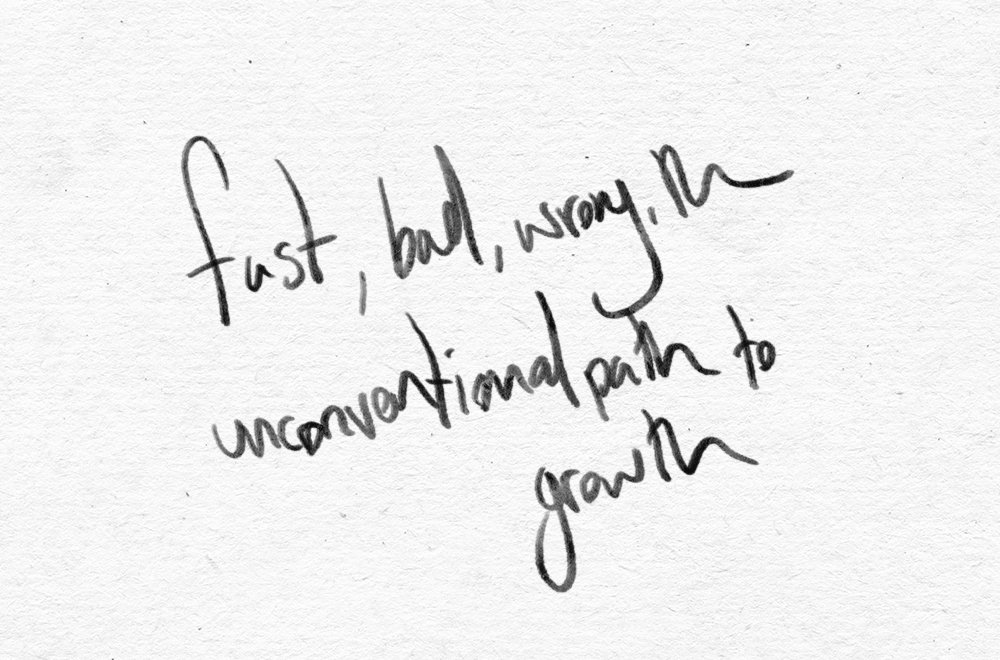 fast, bad, wrong. the
unconventional path to
growth